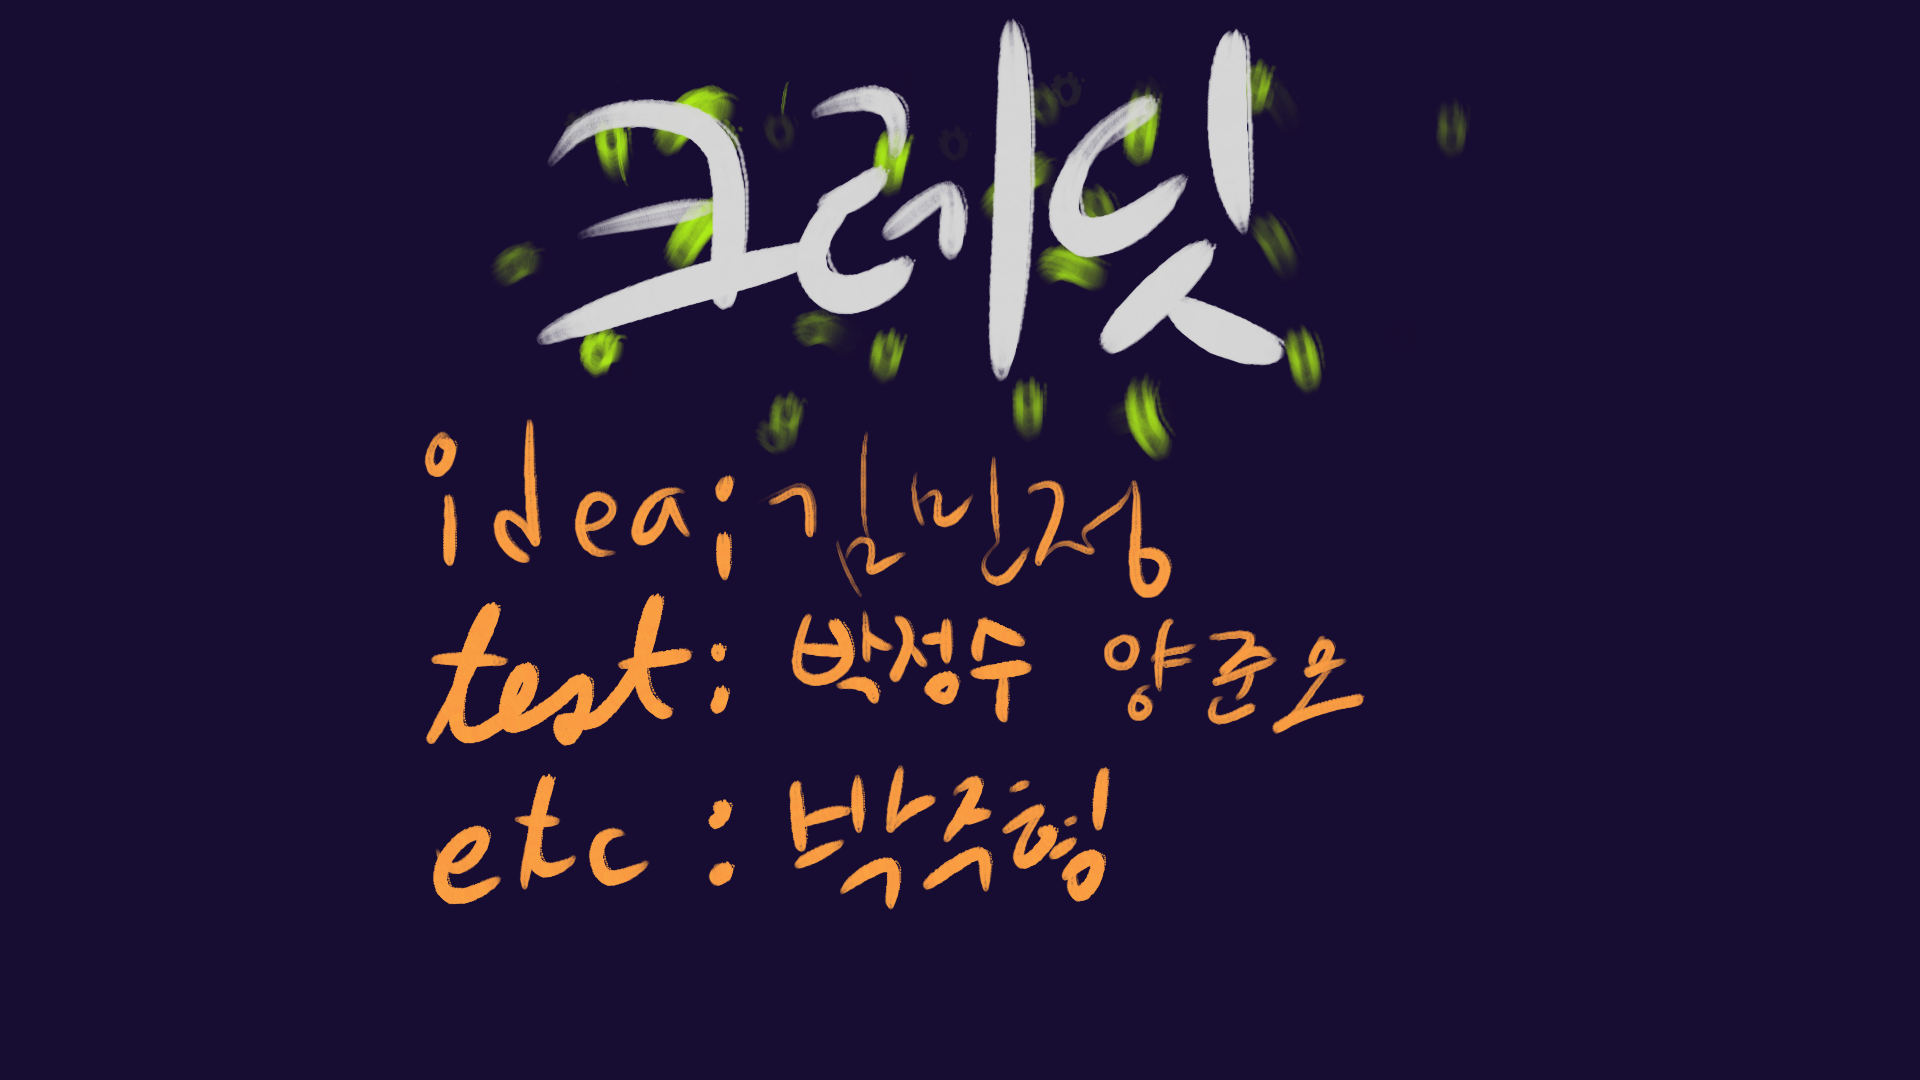 크레딧
idea: 김민정
test: 박성수 양준오
etc : 박주형